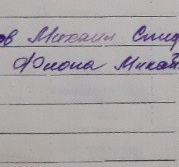 ов Михаил Спир
Фиона Михай